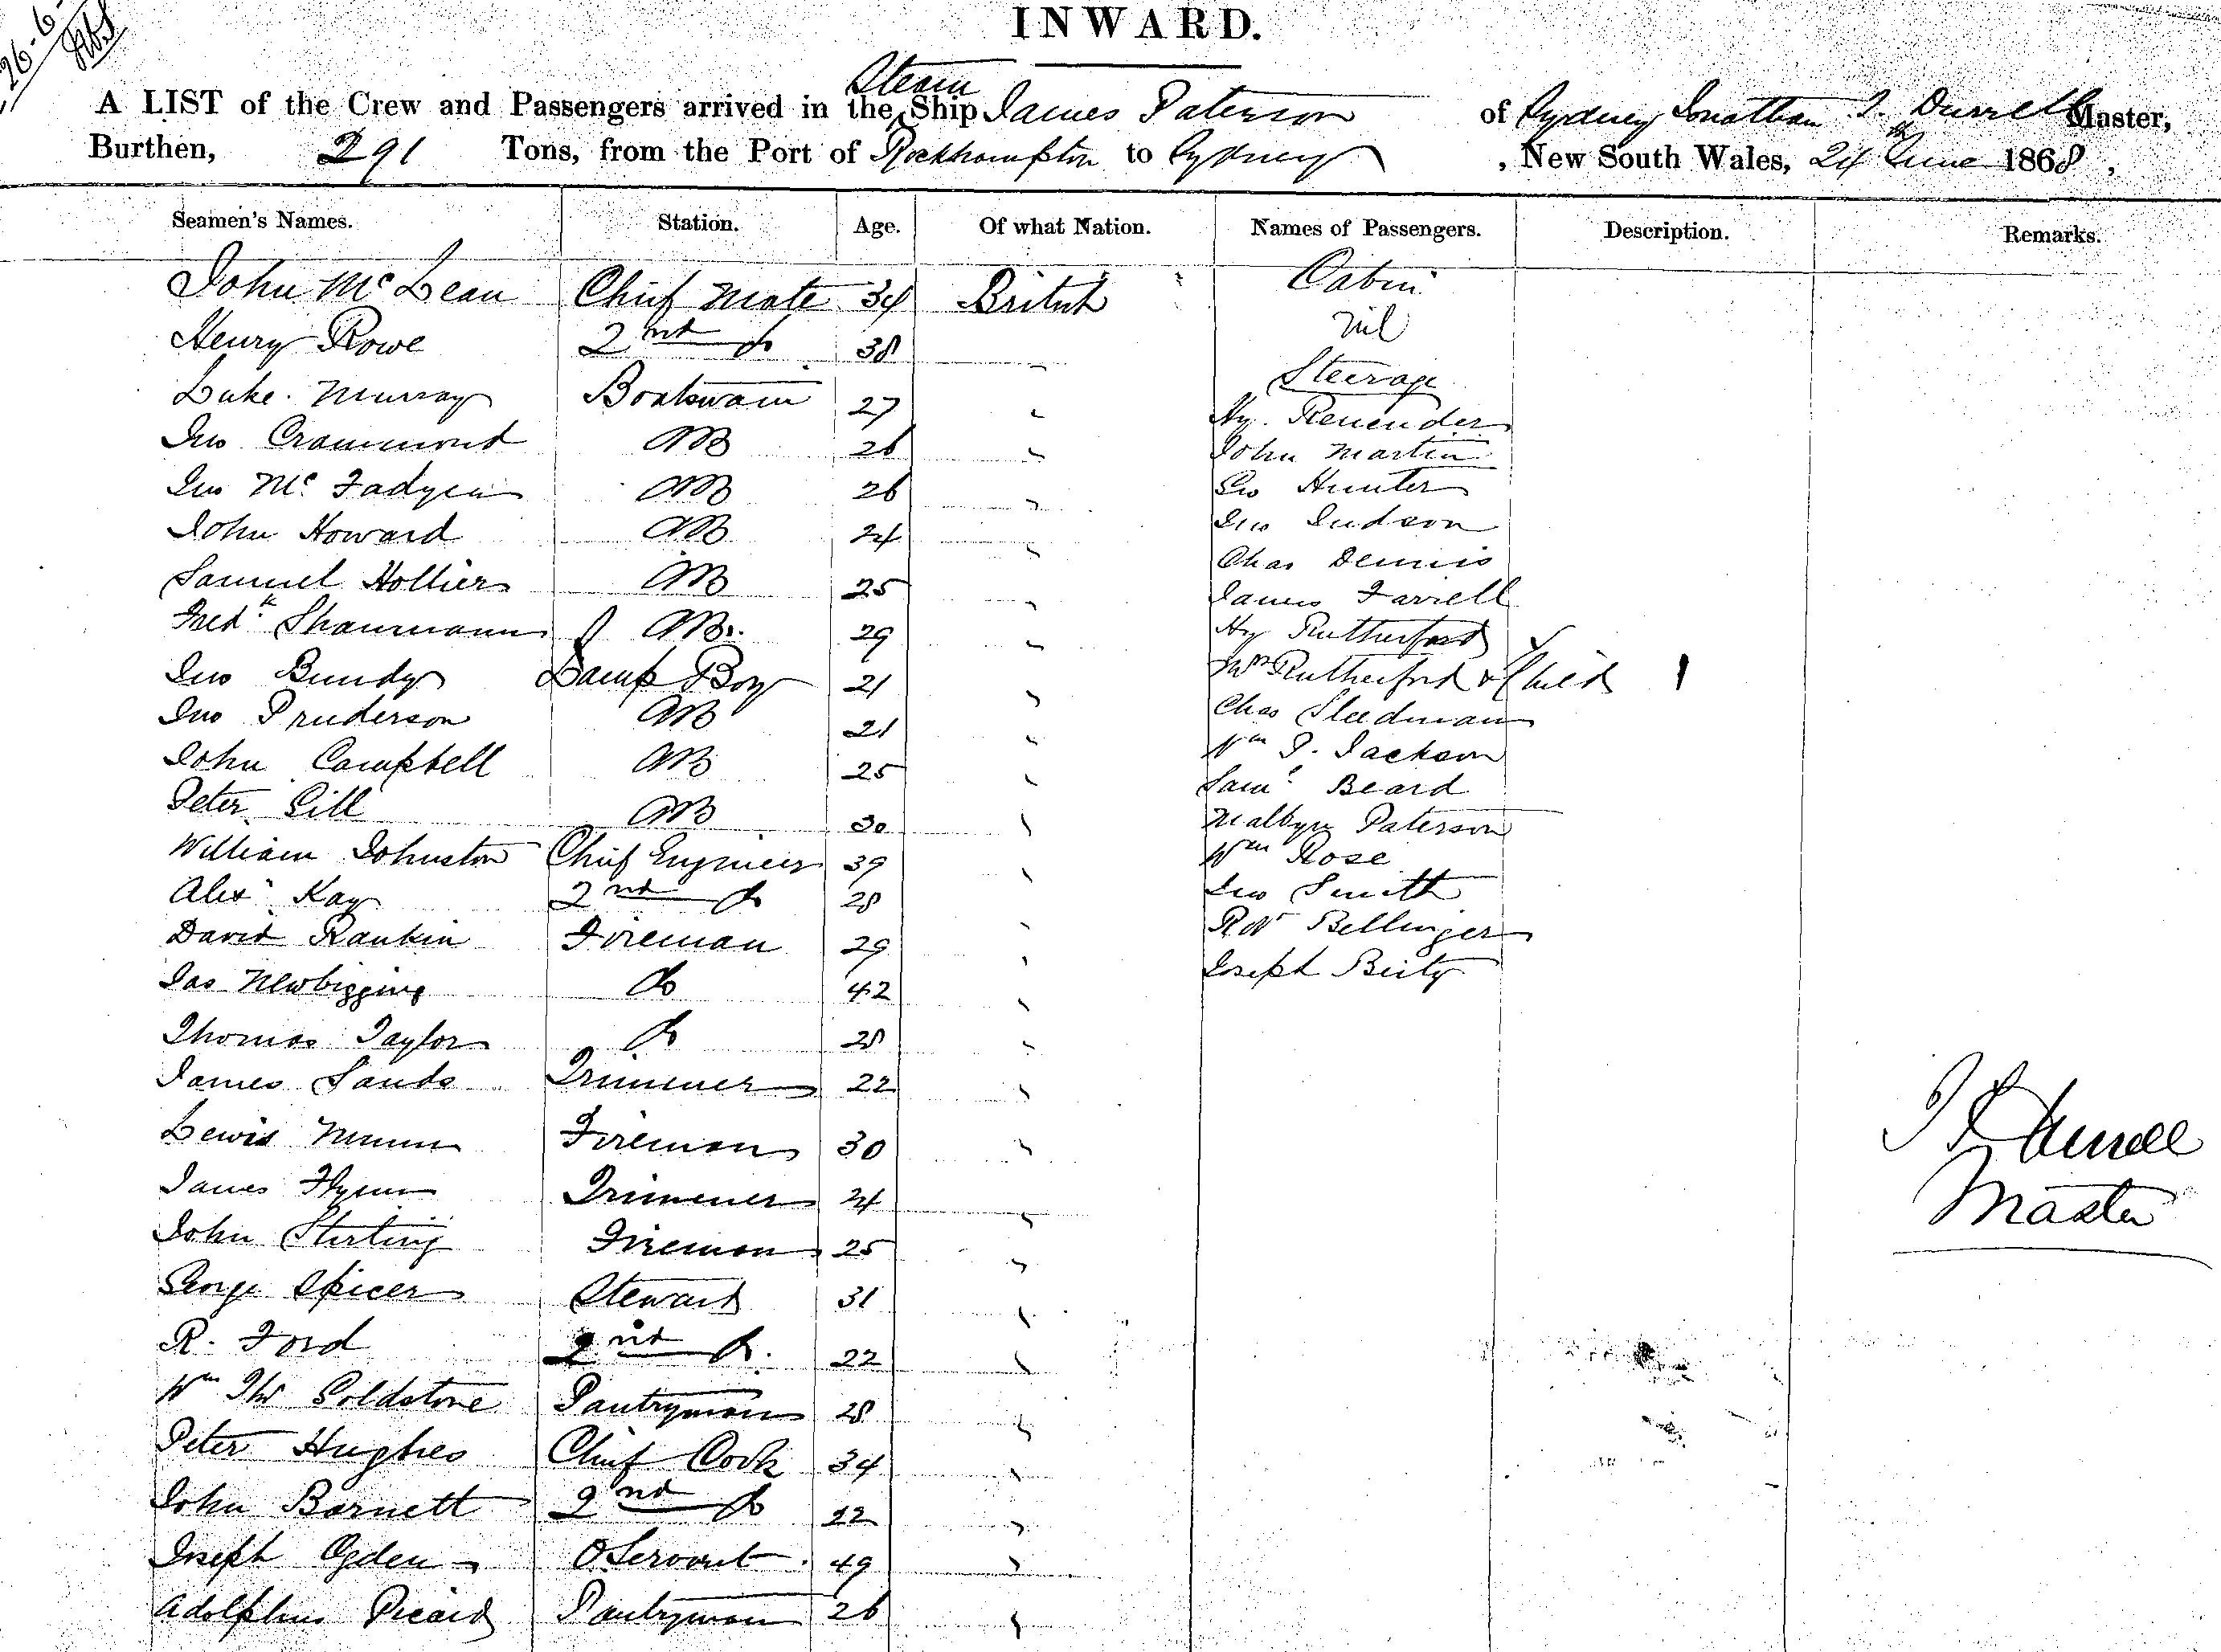 26-6-
INWARD.
Steam
A LIST of the Crew and Passengers arrived in the Ship James Paterson of Sydney Jonathan S. Durrell Master,
Burthen, 291 Tons, from the Port of Rockhampton to Sydney , New South Wales, 24th June 1868 ,
Seamen's Names. Station. Age. Of what Nation. Names of Passengers. Description. Remarks.
John McLean Chief Mate 34 British Cabin
Henry Rowe 2nd do 38 " nil
Luke Murray Boatswain 27 " Steerage
Hy.
Jno Crammond AB 26 " John Martin
Jno McFadyen AB 26 " Geo Hunter
John Howard AB 24 " Jno Judson
Chas Dennis
Samuel Hollier AB 25 " James Farrell
Fredk Shaurmann AB. 29 " Hy Rutherford
Jno Bundy Lamp Boy 21 " Mrs Rutherford & Child 1
Jno Pruderson AB 21 " Chas Sleedman
John Campbell AB 25 " Wm J. Jackson
Peter Gill AB 30 " Saml Beard
Malbyn Paterson
William Johnston Chief Engineer 39 " Wm Rose
Alexr Kay 2nd do 28 " Jno Smith
David Rankin Fireman 29 " Robt Bellinger
Jas Newbigging do 42 " Joseph
Thomas Taylor do 28 "
James Sands Trimmer 22 "
Lewis Munn Fireman 30 "
James Flynn Trimmer 24 "
John Stirling Fireman 25 "
George Spicer Steward 31 "
R. Ford 2nd do. 22 "
Wm Thos Goldstone Pantryman 28 "
Peter Hughes Chief Cook 34 "
John Barnett 2nd do 22 "
Joseph Ogden O Servant 49 "
Adolphus Picard Pantryman 26 "
J S Durrell
Master